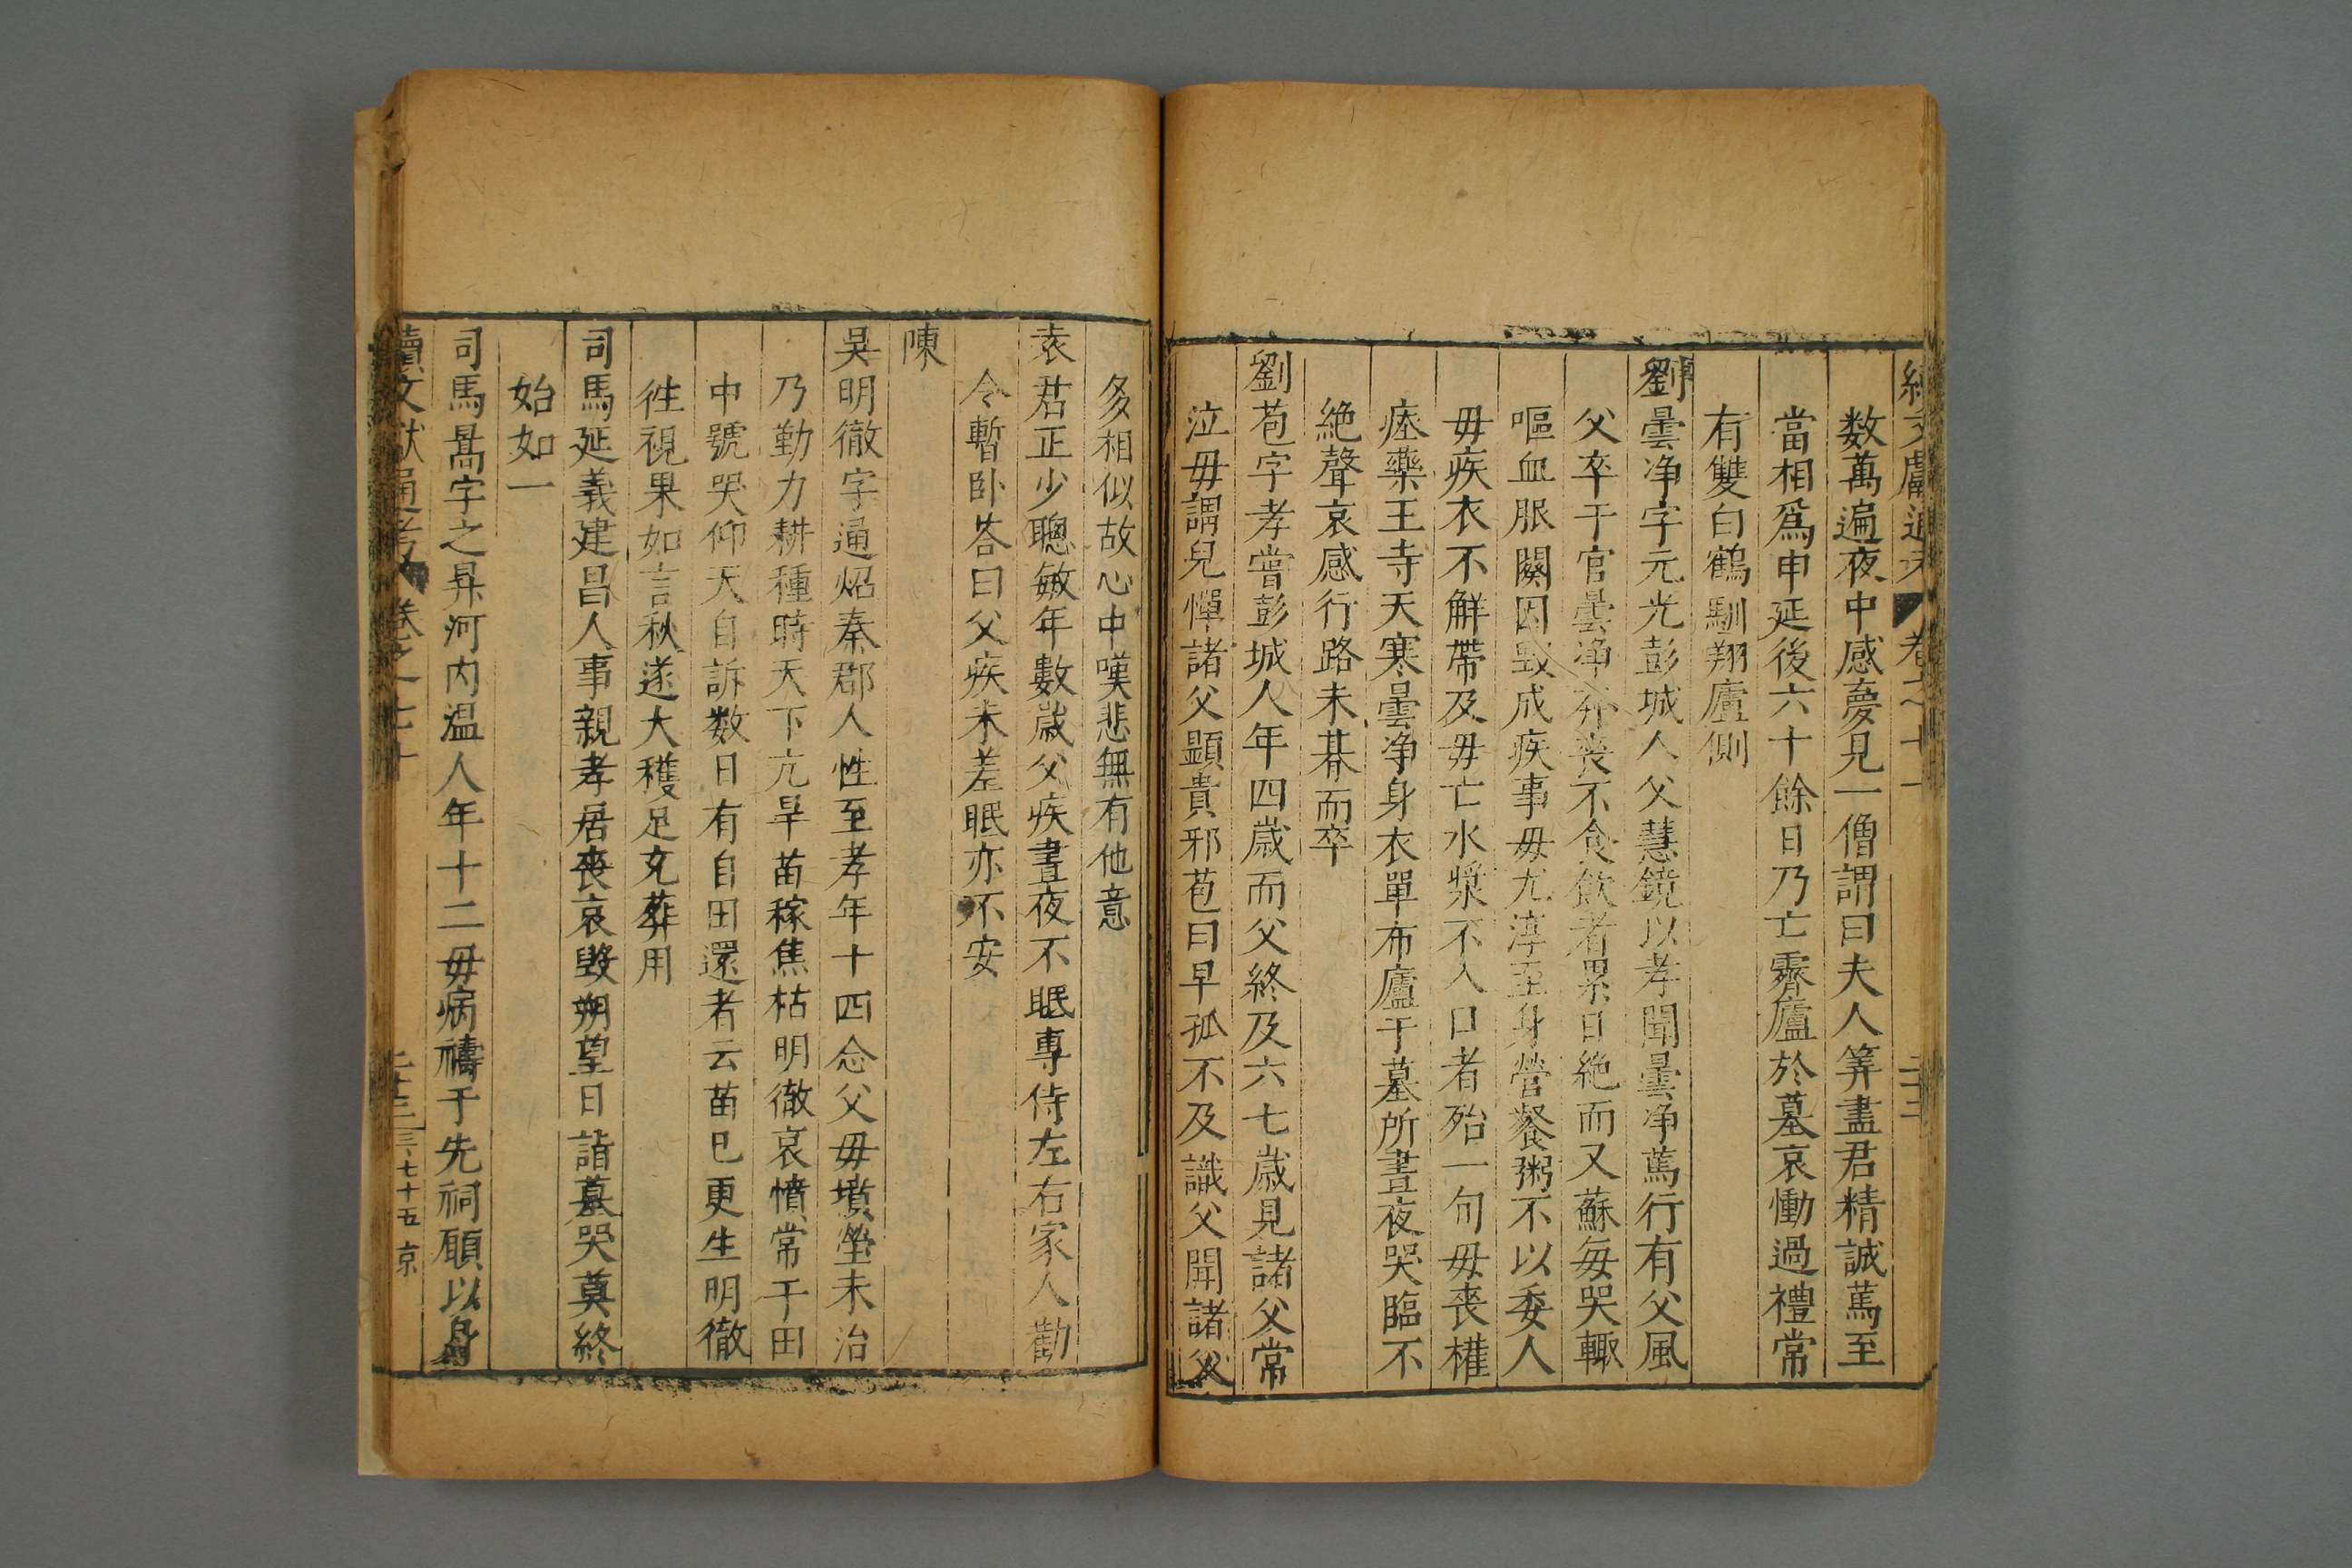 續文獻通考 卷之七十一 二十三
数萬遍夜中感夢見一僧謂曰夫人筭盡君精誠篤至
當相爲申延後六十餘日乃亡霽廬於墓哀慟過禮常
有雙白鶴馴翔廬側
劉曇淨字元光彭城人父慧鏡以孝聞曇淨篤行有父風
父卒于官曇淨奔喪不食飲者累日絶而又蘇每哭輙
嘔血服闋因毀成疾事毋尤淳至身營飱粥不以委人
毋疾衣不解帶及毋亡水漿不入口者殆一旬毋喪權
瘞藥王寺天寒曇淨身衣單布廬于墓所晝夜哭臨不
絶聲哀感行路未朞而卒
劉苞字孝嘗彭城人年四歳而父終及六七歳見諸父常
泣毋謂兒憚諸父顯貴邪苞曰早孤不及識父聞諸父
多相似故心中嘆悲無有他意
袁君正少聰敏年數歳父疾晝夜不眠專侍左右家人勸
令暫卧答曰父疾未差眠亦不安
陳
吳明徹字通炤秦郡人性至孝年十四念父毋墳塋未治
乃勤力耕種時天下亢旱苗稼焦枯明徹哀憤常于田
中號哭仰天自訴数日有自田還者云苗已更生明徹
徃視果如言秋遂大穫足充葬用
司馬延義建昌人事親孝居喪哀毀朔望日詣墓哭奠終
始如一
司馬暠字之昇河内温人年十二毋病禱于先祠願以身
續文獻通考 卷之七十 二十三 三七十五 京